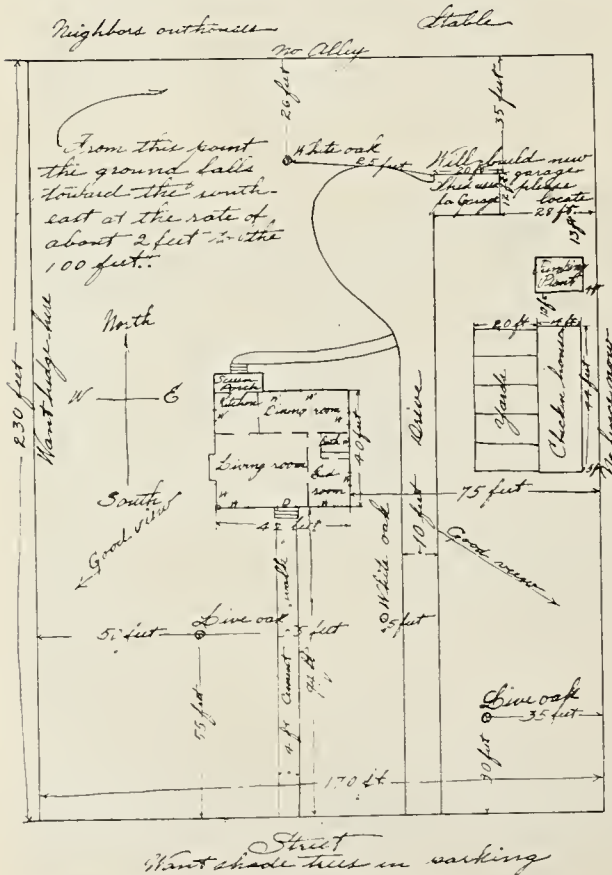 Neighbors outhouses
Stable
no Alley
26 feet
35 feet
From this point
the ground falls
toward the south-
east at the rate of
about 2 feet in the
100 feet.
White oak
25 feet
Will build new
garage
please
locate
20 ft
Shed used
for Garage
12 ft
28 ft.
13 ft
Pumping
Plant
4 ft
12 ft
20 ft
14 ft
Yards
Chicken houses
44 feet
5 ft
No fence now
230 feet
Want hedge here
North
W
E
South
Good view
Screen
Porch
Kitchen
Dining room
Bath
Living room
Bed
room
40 feet
42 feet
D
Drive
75 feet
10 feet
Good view
White oak
5 feet
Live oak
51 feet
5 feet
55 feet
4 ft Cement walk
94 ft
Live oak
35 feet
30 feet
170 ft
Street
Want shade trees in parking